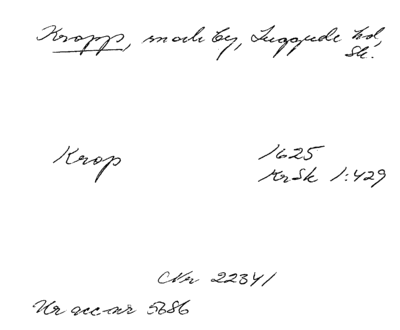 Kropp, snr o by, Luggude hd,
Sk.
Krop 1625
KrSk 1:429
CNr 22341
Ur acc nr 5686